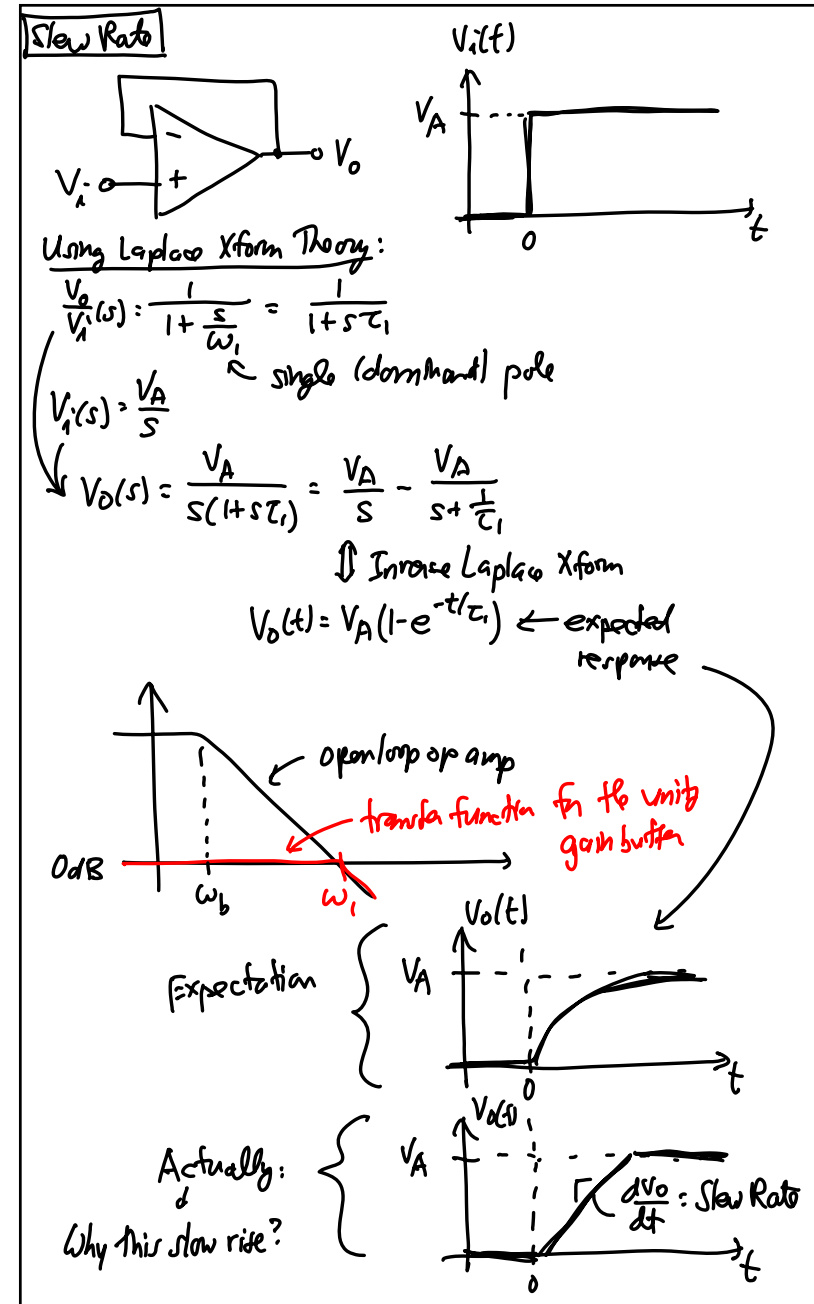 Slew Rate
Vi(t)
VA
0
t
Vi
-
+
Vo
Using Laplace Xform Theory:
Vo/Vi(s) = 1/(1 + s/ω1) = 1/(1 + sτ1)
single (dominant) pole
Vi(s) = VA/s
Vo(s) = VA/(s(1+sτ1)) = VA/s - VA/(s + 1/τ1)
⇕ Inverse Laplace Xform
Vo(t) = VA(1-e^(-t/τ1)) ← expected
response
open loop op amp
transfer function for the unity
gain buffer
0dB
ωb
ω1
Vo(t)
Expectation
VA
0
t
Vo(t)
Actually:
VA
dVo/dt = Slew Rate
Why this slow rise?
0
t